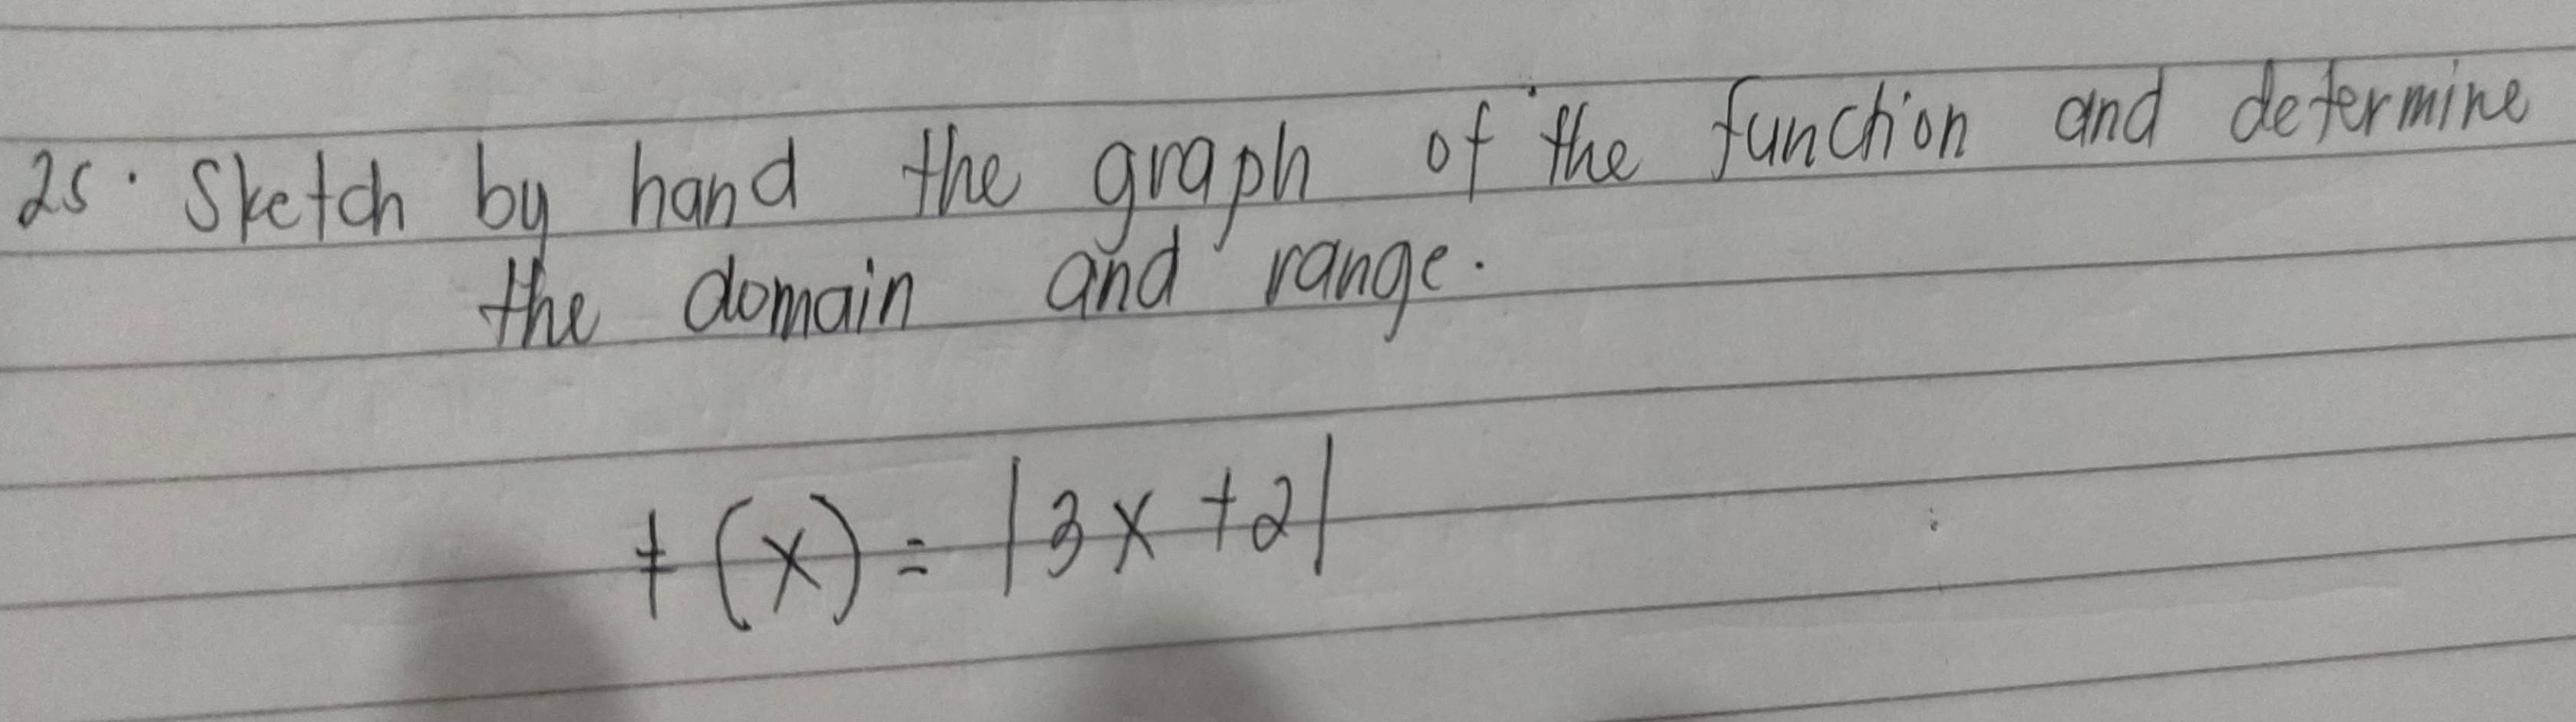 25. Sketch by hand the graph of the function and determine
the domain and range.
f(x) = |3x+2|